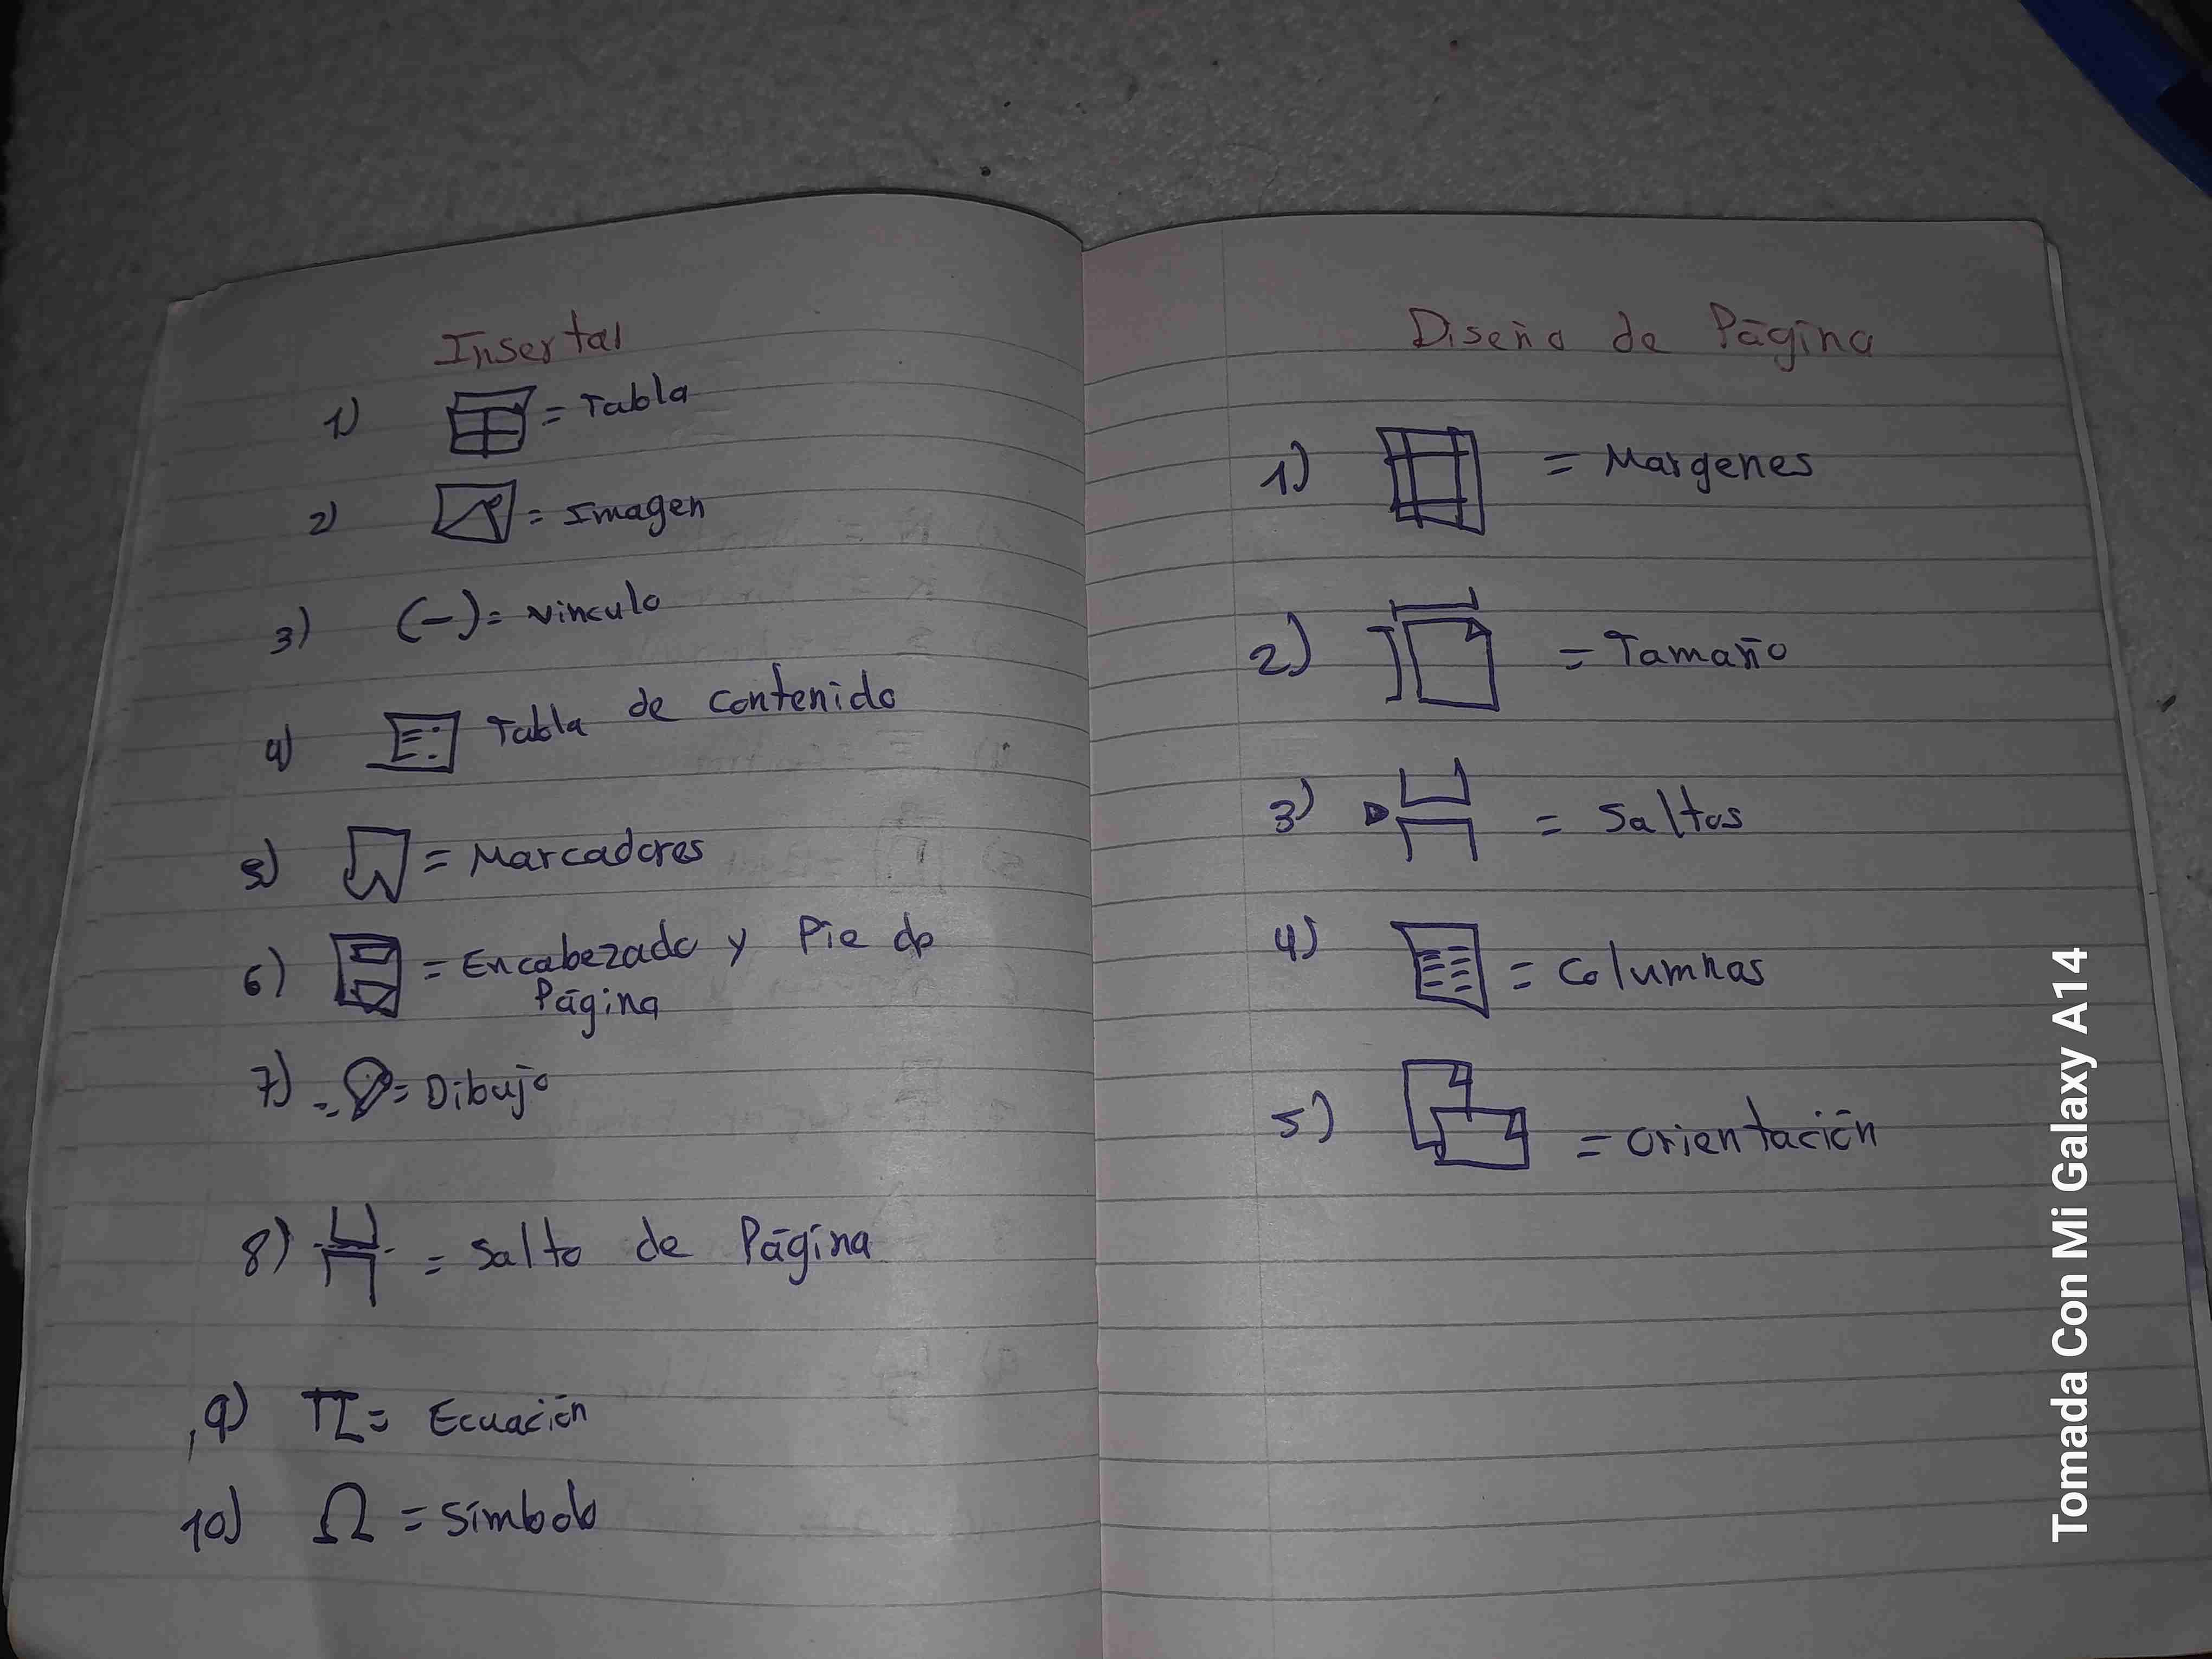 Insertar
1) = Tabla
2) = Imagen
3) (-) = vinculo
4) Tabla de contenido
5) = Marcadores
6) = Encabezado y Pie de
Página
7) = Dibujo
8) = Salto de Página
9) π = Ecuación
10) Ω = Símbolo
Diseño de Página
1) = Margenes
2) = Tamaño
3) = Saltos
4) = Columnas
5) = orientación
Tomada Con Mi Galaxy A14